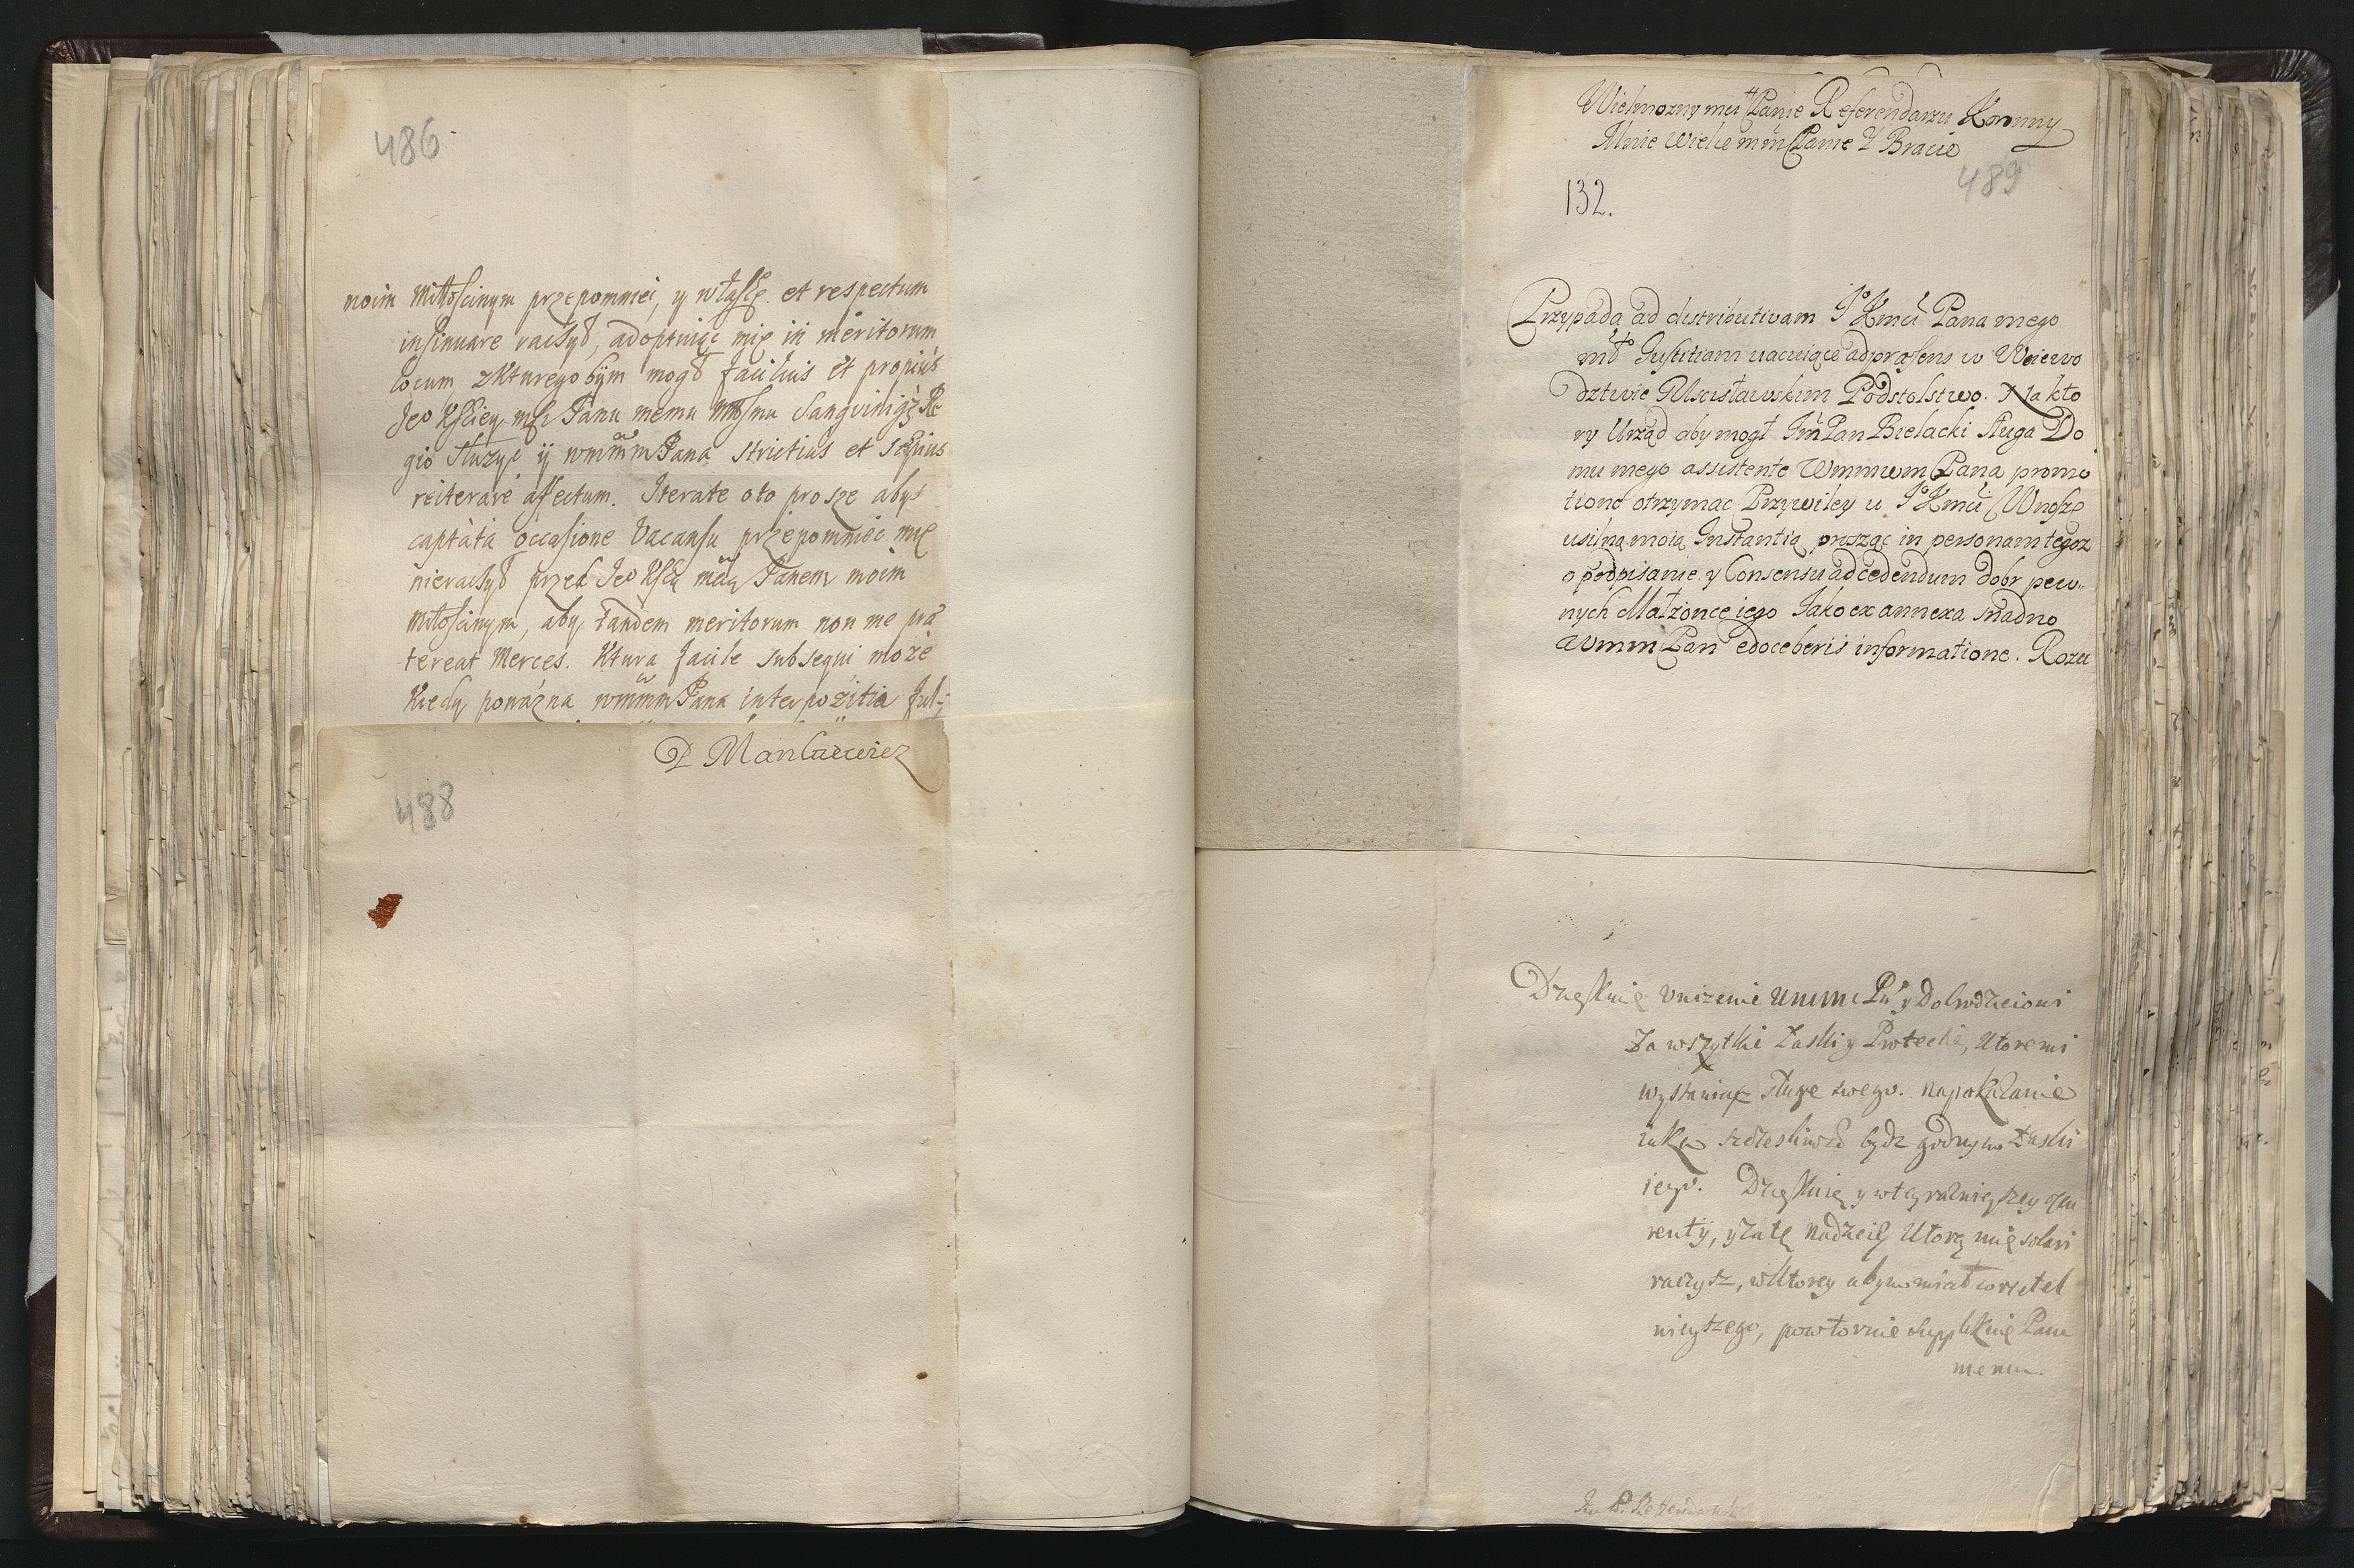 486
noim Miłościnym przepomniei, y włąskę et respectum
insinuare raczył, adoptuiąc mię in meritorum
locum, zkturego bÿm mogł facilius et propius
Jeo Kściey mści Panu memu Młosnu Sangvinigż Re
gio służyc ÿ wmmm Pana strictius et sæpius
reiterare affectum. Iterate oto prosze abys
captàtà occasione Vacansu przepomniec mię
nieraczył przed Jeo Kścią mcią Panem moim
Miłoscinym, aby tandem meritorum non me præ
tereat Merces. Ktura facile subsequi może
Kiedy powàżna wmmm Pana interpozitia ful-
P Mankiewicz
488
Wielmozny mci Panie Referendarzu Koronny
Mnie wielce mm Panie Y Bracie
489
132.
Przypada ad distributivam J Kmci Pana mego
mł Justitiam vacuiące ad præsens w Woiewo
dztwie Mscisławskim Podstolstwo. Na kto
ry Urząd aby mogł Jm Pan Bielacki Sługa Do
mu mego assistente Wmmwm Pana promo
tione otrzymac Przywiley u J Kmci Wnoszę
usilną moią Instantią prosząc in personam tegoz
o podpisanie y Consensu ad cedendum dobr pew-
nych Małzonce iego Jako ex annexa snadno
Wmm Pan edoceberis informatione. Rozu
Dzięskuię Unizenie Ummc Pu y Dobrodzieiowi
Za wszytkie Łaski y Protectie, Utoremi
wystawiasz sługe swego. na pokazanie
iako szczesliwie bydz godnym Łaski
iego. Dzięskuię y wteyraznieyszey oku
rentÿ, y zatę nadzieię Utorą mię solari
raczysz, wUtorey abym miał co rzetel
nieyszego, powtornie supplikuię Panu
memu.
Jm P. Referendarz